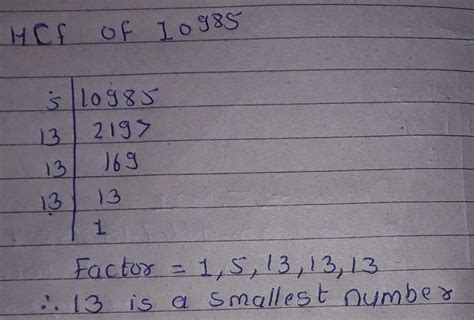 HCf of 10985
5 | 10985
13 | 2197
13 | 169
13 | 13
1
Factor = 1, 5, 13, 13, 13
∴ 13 is a smallest number